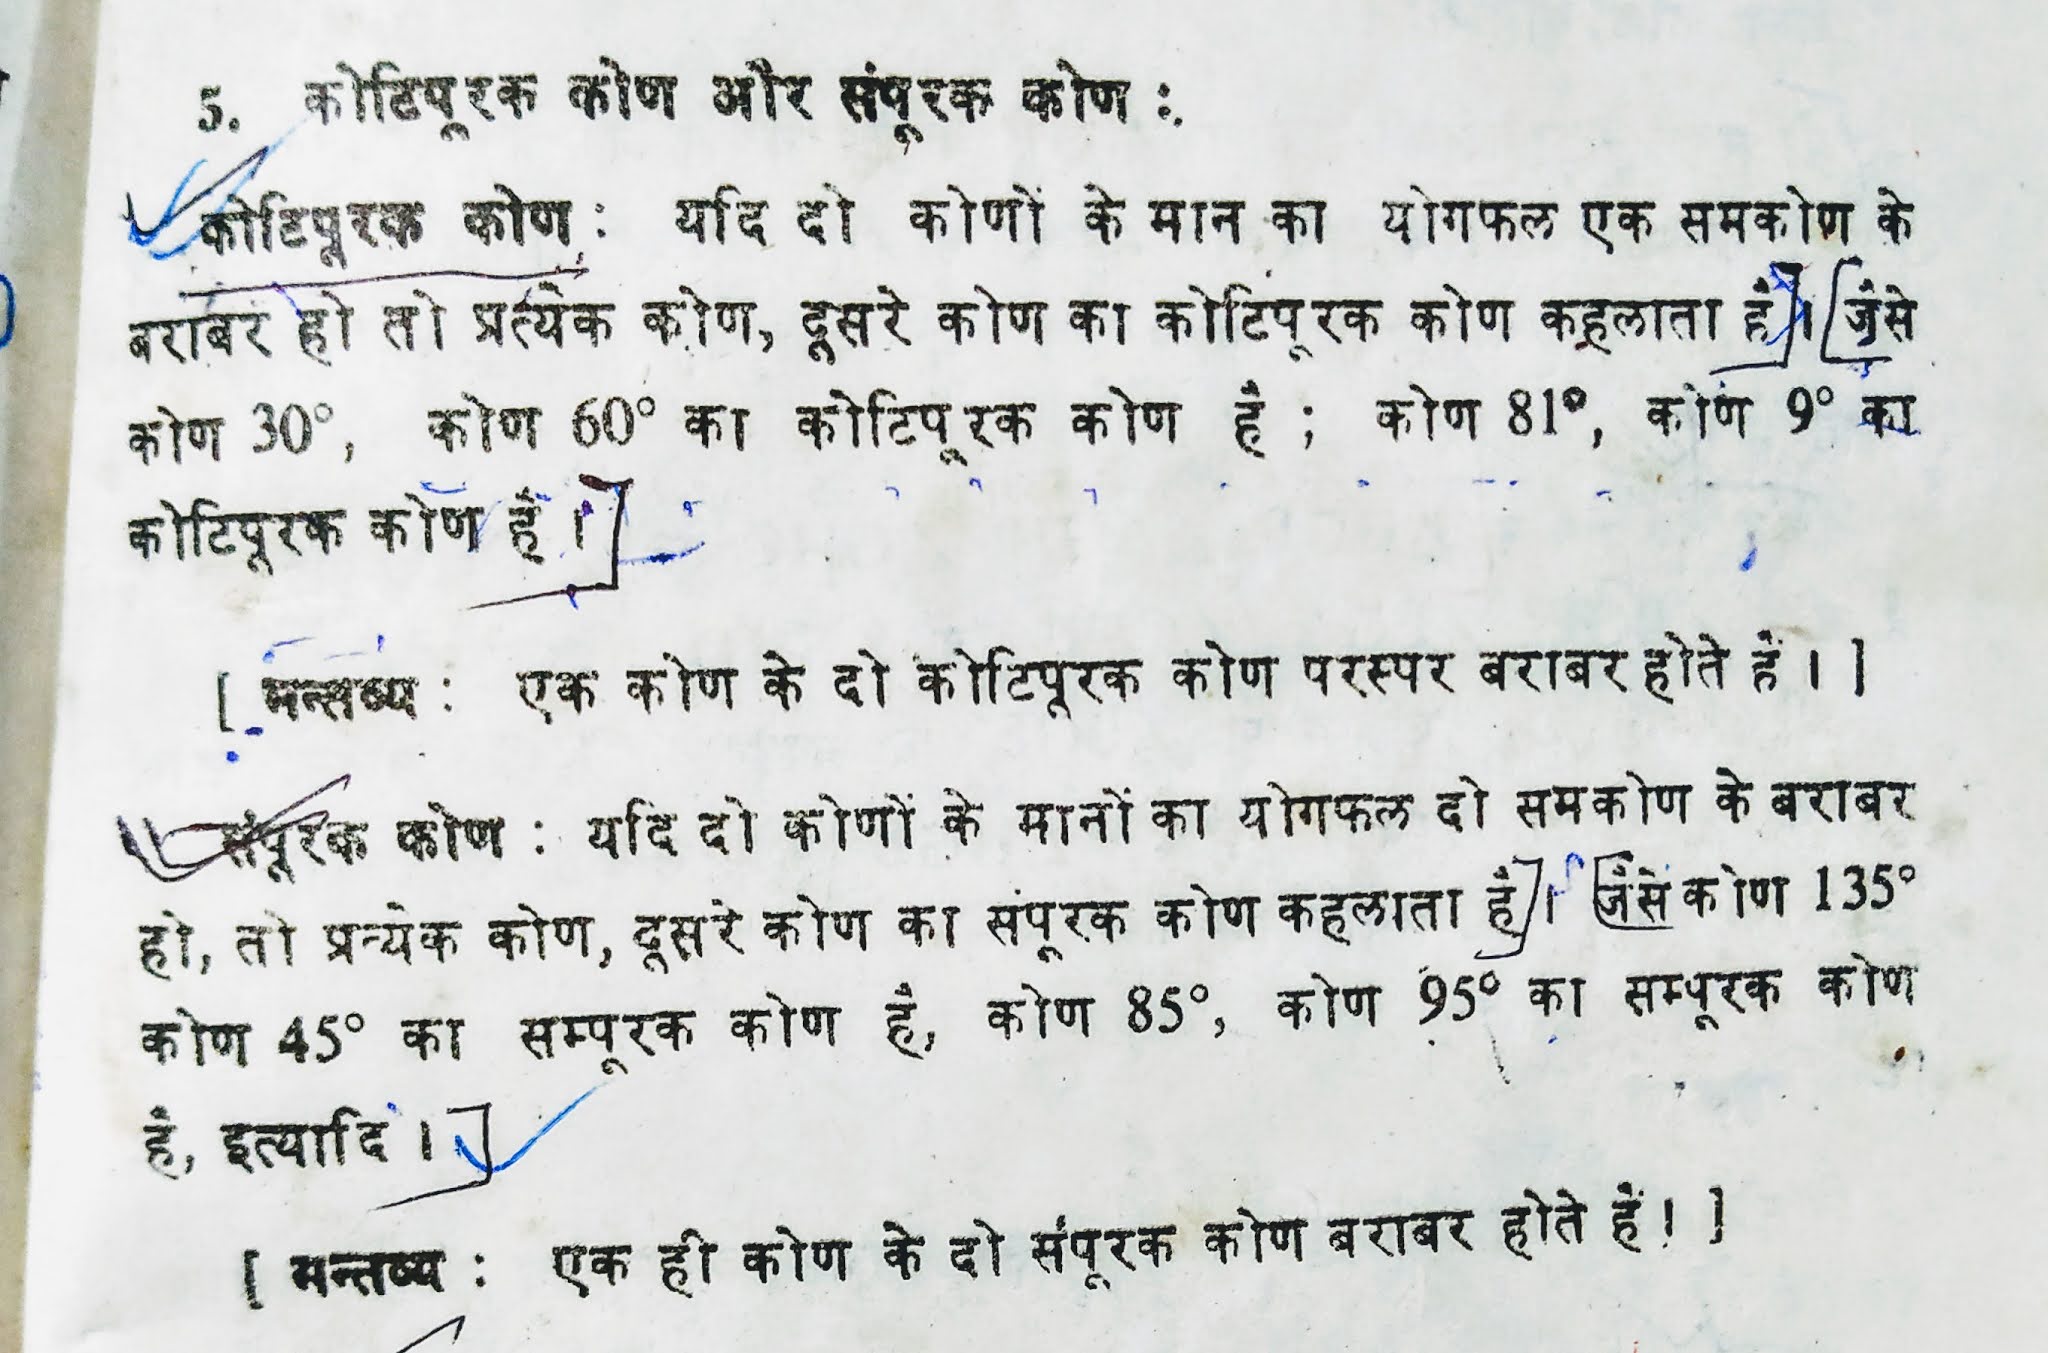 5. कोटिपूरक कोण और संपूरक कोण :
कोटिपूरक कोण : यदि दो कोणों के मान का योगफल एक समकोण के
बराबर हो तो प्रत्येक कोण, दूसरे कोण का कोटिपूरक कोण कहलाता है। जैसे
कोण 30°, कोण 60° का कोटिपूरक कोण है ; कोण 81°, कोण 9° का
कोटिपूरक कोण है ।
[ मन्तव्य : एक कोण के दो कोटिपूरक कोण परस्पर बराबर होते हैं । ]
संपूरक कोण : यदि दो कोणों के मानों का योगफल दो समकोण के बराबर
हो, तो प्रत्येक कोण, दूसरे कोण का संपूरक कोण कहलाता है । जैसे कोण 135°
कोण 45° का सम्पूरक कोण है, कोण 85°, कोण 95° का सम्पूरक कोण
है, इत्यादि ।
[ मन्तव्य : एक ही कोण के दो संपूरक कोण बराबर होते हैं ! ]